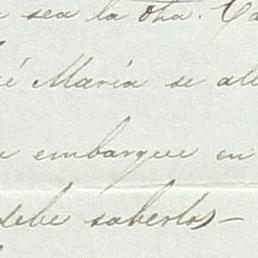 sea la otra. Ca
é María se al
embarque en
debe saberlo) –